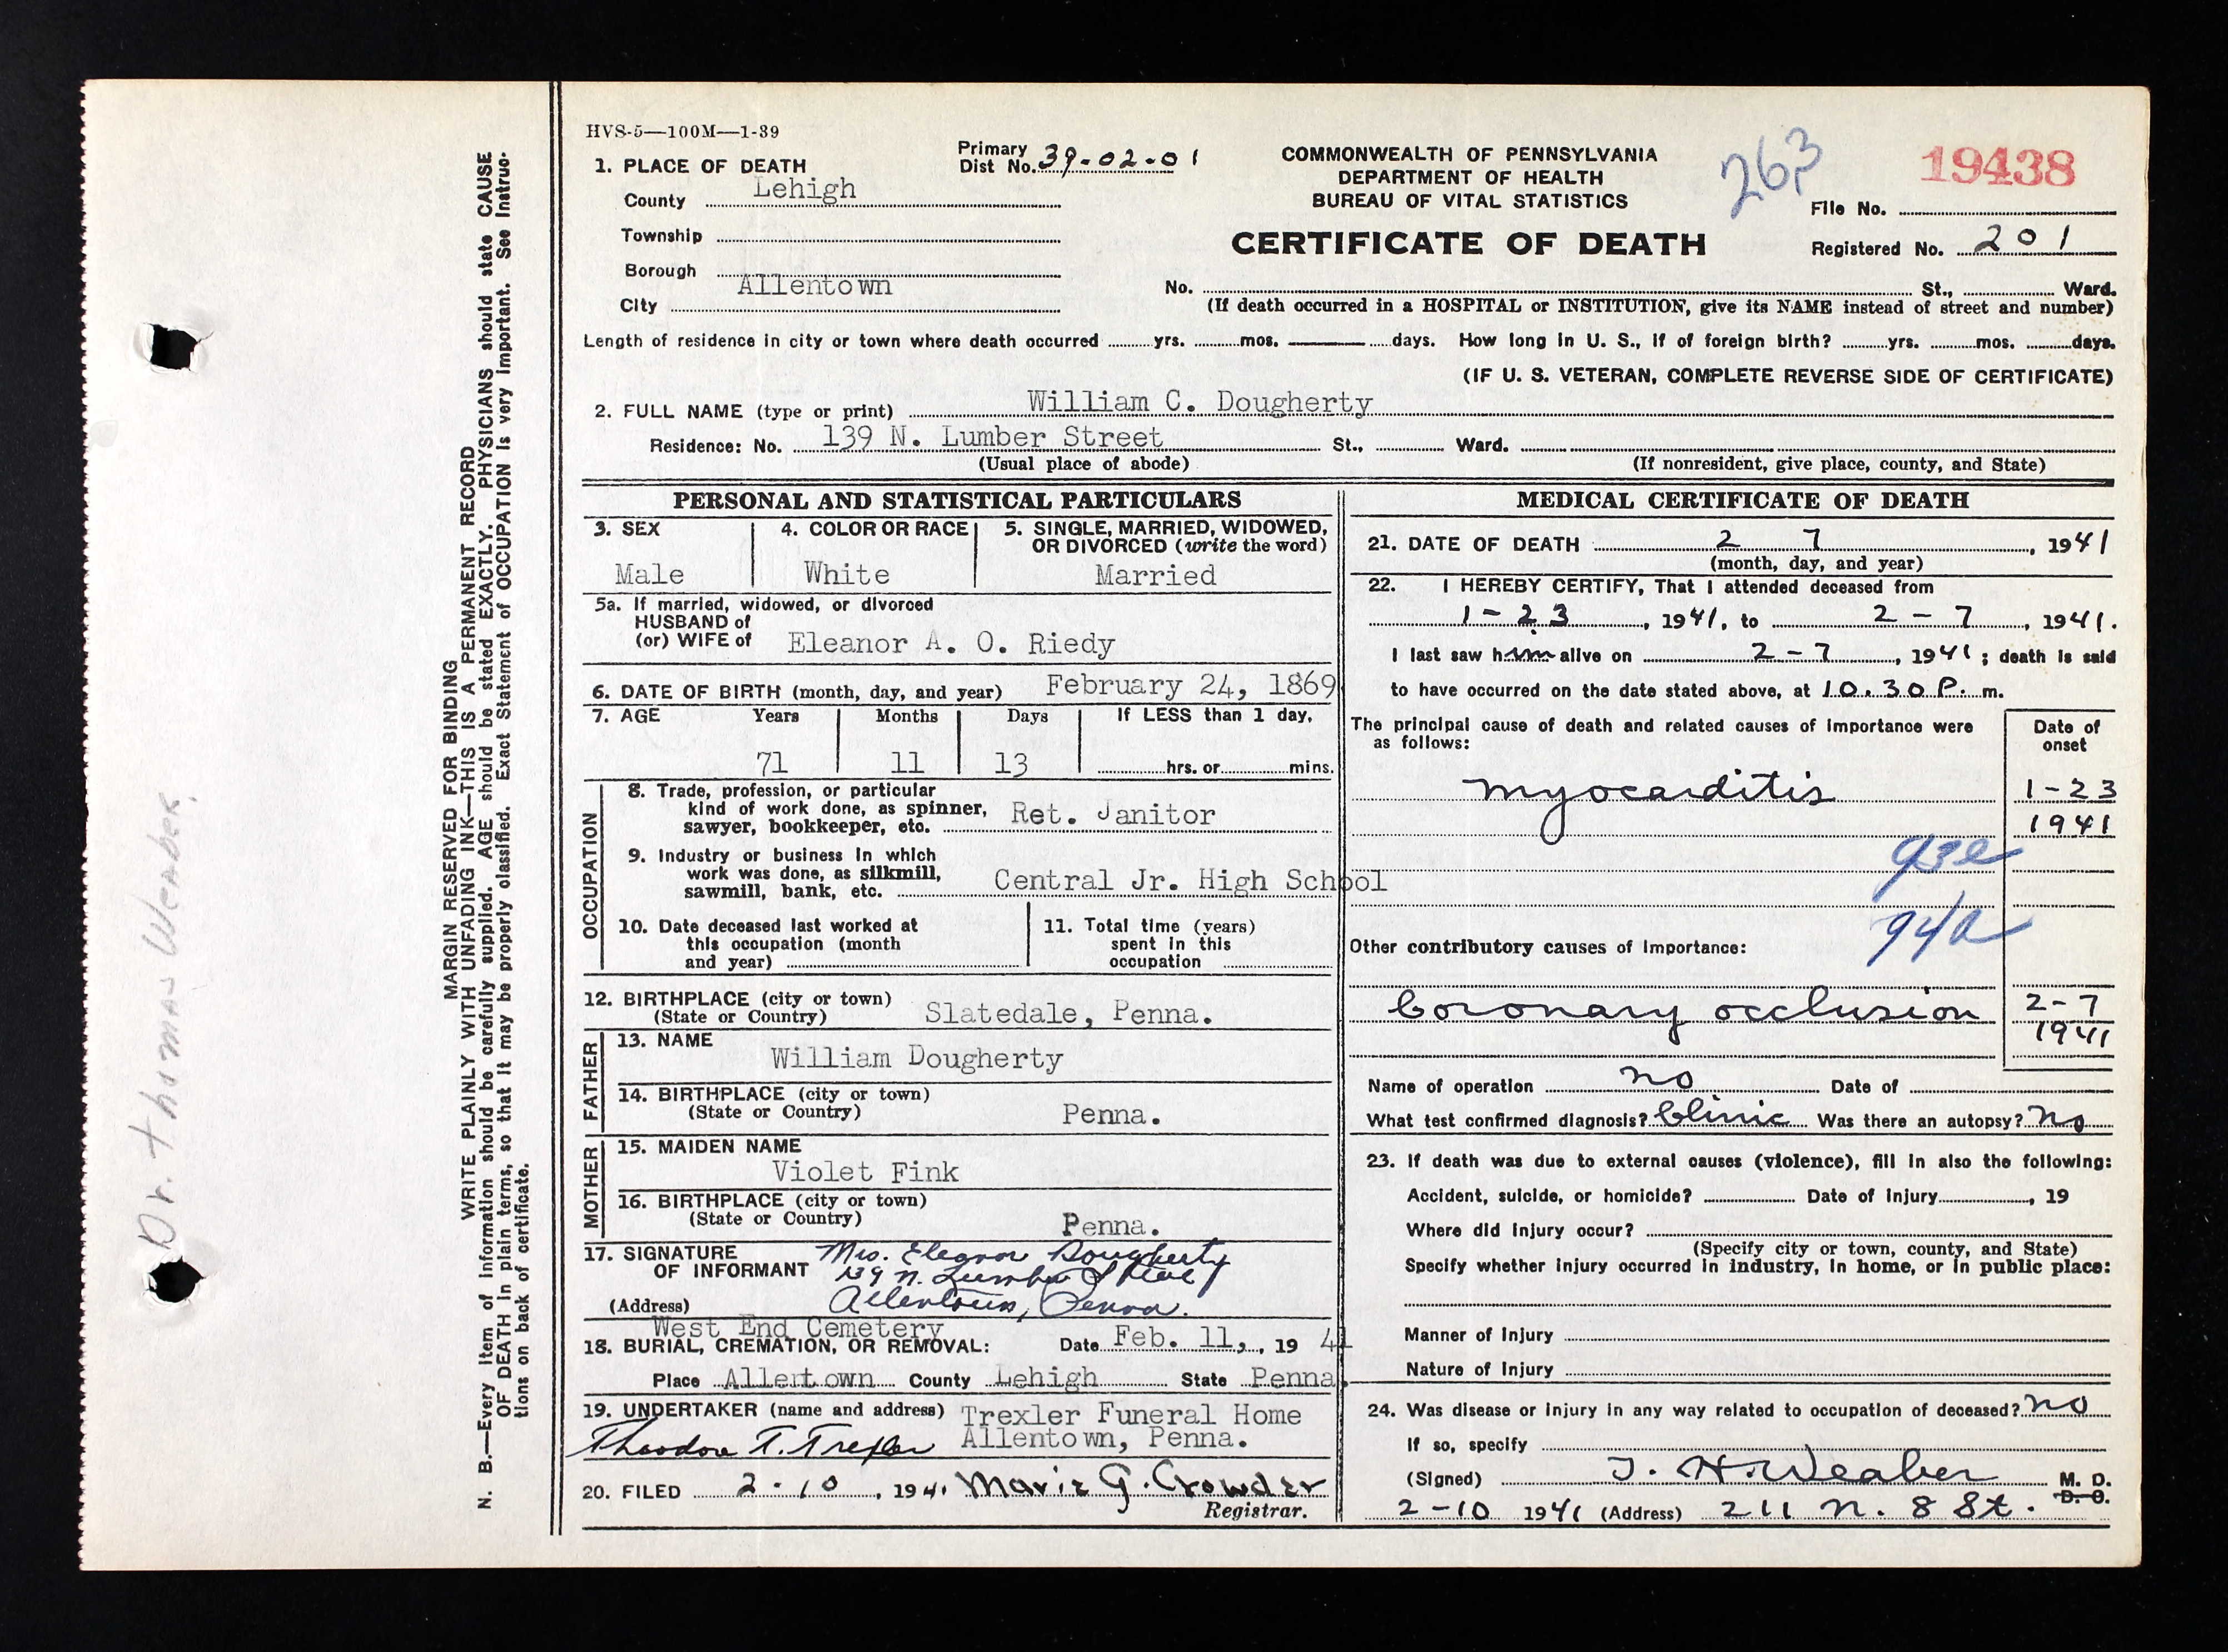 HVS-5—100M—1-39
1. PLACE OF DEATH
Primary
Dist No. 39-02-01
County Lehigh
Township
Borough
City Allentown
COMMONWEALTH OF PENNSYLVANIA
DEPARTMENT OF HEALTH
BUREAU OF VITAL STATISTICS
CERTIFICATE OF DEATH
263
19438
File No.
Registered No. 201
No. St., Ward.
(If death occurred in a HOSPITAL or INSTITUTION, give its NAME instead of street and number)
Length of residence in city or town where death occurred yrs. mos. days. How long in U. S., if of foreign birth? yrs. mos. days.
(IF U. S. VETERAN, COMPLETE REVERSE SIDE OF CERTIFICATE)
2. FULL NAME (type or print) William C. Dougherty
Residence: No. 139 N. Lumber Street St., Ward.
(Usual place of abode) (If nonresident, give place, county, and State)
PERSONAL AND STATISTICAL PARTICULARS
3. SEX
Male
4. COLOR OR RACE
White
5. SINGLE, MARRIED, WIDOWED,
OR DIVORCED (write the word)
Married
5a. If married, widowed, or divorced
HUSBAND of
(or) WIFE of Eleanor A. O. Riedy
6. DATE OF BIRTH (month, day, and year) February 24, 1869
7. AGE Years Months Days If LESS than 1 day,
71 11 13 hrs. or mins.
OCCUPATION
8. Trade, profession, or particular
kind of work done, as spinner,
sawyer, bookkeeper, etc. Ret. Janitor
9. Industry or business in which
work was done, as silkmill,
sawmill, bank, etc. Central Jr. High School
10. Date deceased last worked at
this occupation (month
and year)
11. Total time (years)
spent in this
occupation
12. BIRTHPLACE (city or town)
(State or Country) Slatedale, Penna.
FATHER
13. NAME
William Dougherty
14. BIRTHPLACE (city or town)
(State or Country) Penna.
MOTHER
15. MAIDEN NAME
Violet Fink
16. BIRTHPLACE (city or town)
(State or Country) Penna.
17. SIGNATURE
OF INFORMANT Mrs. Eleanor Dougherty
139 N. Lumber Street
(Address) Allentown, Penna.
West End Cemetery
18. BURIAL, CREMATION, OR REMOVAL: Date Feb. 11, 1941
Place Allentown County Lehigh State Penna.
19. UNDERTAKER (name and address) Trexler Funeral Home
Theodore T. Trexler Allentown, Penna.
20. FILED 2-10, 1941 Marie G. Crowder
Registrar.
MEDICAL CERTIFICATE OF DEATH
21. DATE OF DEATH 2 7, 1941
(month, day, and year)
22. I HEREBY CERTIFY, That I attended deceased from
1-23, 1941, to 2-7, 1941.
I last saw him alive on 2-7, 1941; death is said
to have occurred on the date stated above, at 10.30 P. m.
The principal cause of death and related causes of importance were
as follows:
Date of
onset
myocarditis 1-23
1941
93e
94a
Other contributory causes of importance:
Coronary occlusion 2-7
1941
Name of operation no Date of
What test confirmed diagnosis? Clinic Was there an autopsy? No
23. If death was due to external causes (violence), fill in also the following:
Accident, suicide, or homicide? Date of injury, 19
Where did injury occur?
(Specify city or town, county, and State)
Specify whether injury occurred in industry, in home, or in public place:
Manner of injury
Nature of injury
24. Was disease or injury in any way related to occupation of deceased? No
If so, specify
(Signed) T. H. Weaber M. D.
D. O.
2-10 1941 (Address) 211 N. 8 St.
MARGIN RESERVED FOR BINDING
WRITE PLAINLY WITH UNFADING INK—THIS IS A PERMANENT RECORD
N. B.—Every item of information should be carefully supplied. AGE should be stated EXACTLY. PHYSICIANS should state CAUSE
OF DEATH in plain terms, so that it may be properly classified. Exact Statement of OCCUPATION is very important. See instruc-
tions on back of certificate.
Dr. Thomas Weaber